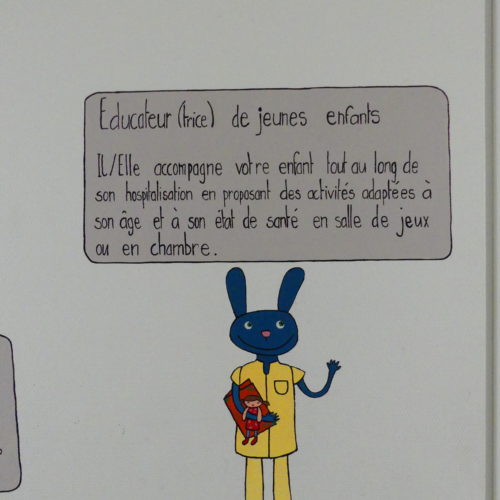 Educateur (trice) de jeunes enfants
Il/Elle accompagne votre enfant tout au long de
son hospitalisation en proposant des activités adaptées à
son âge et à son état de santé en salle de jeux
ou en chambre.